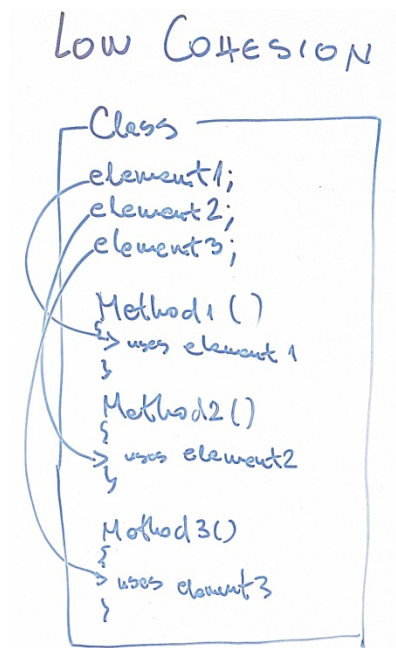 Low COHESION
Class
element1;
element2;
element3;
Method1 ()
{
uses element 1
}
Method2 ()
{
uses element2
}
Method3()
{
uses element3
}